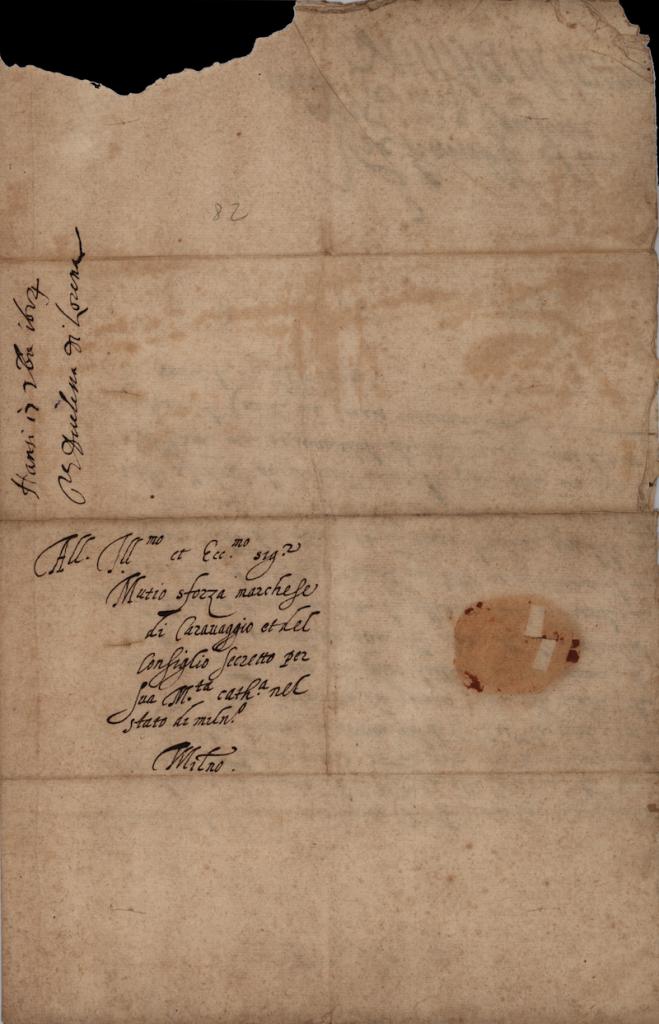 82
Nansi 17 7bre 1614
Duchessa di Lorena
All. Ill.mo et Ecc.mo sig.r
Mutio sforza marchese
di Carauaggio et del
Consiglio secretto per
sua M.ta cath.a nel
stato di miln.o
Milno.